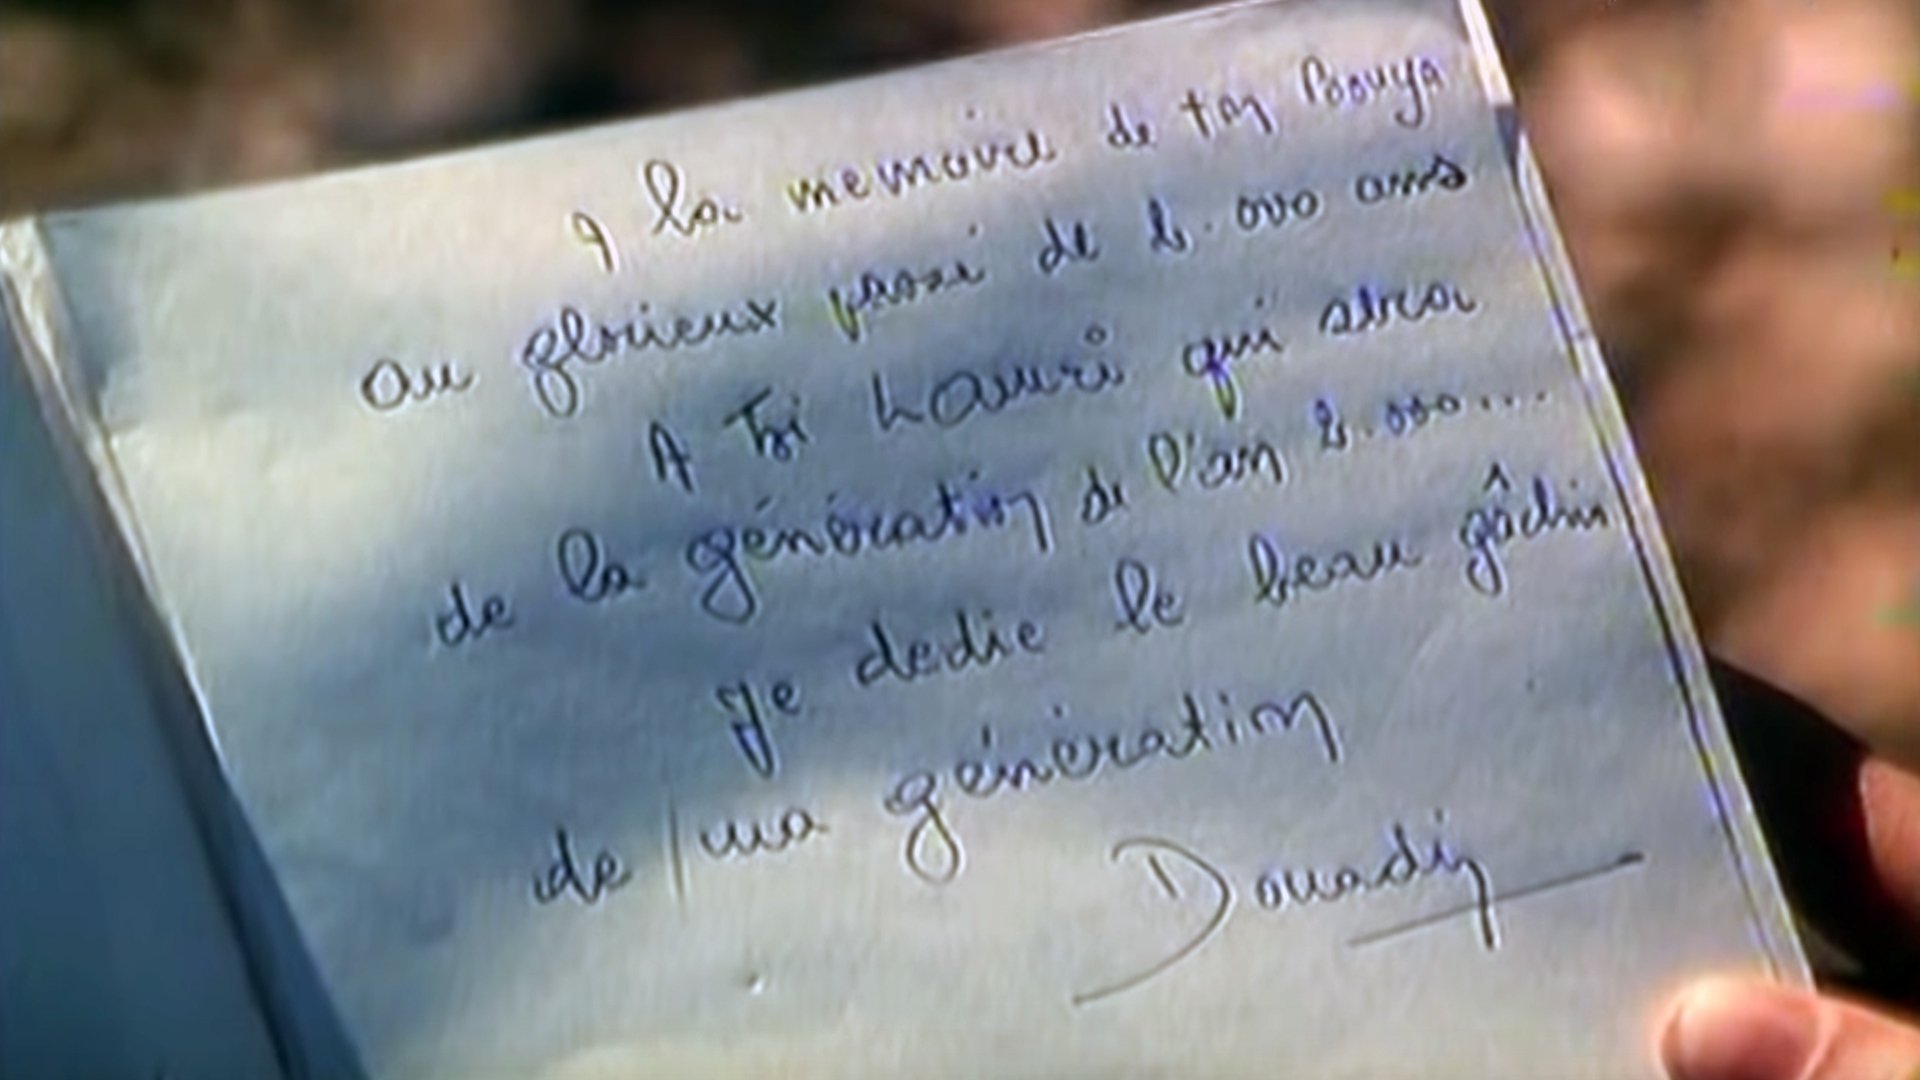 A la memoire de ton Boouya
au glorieux passé de 2.000 ans
A toi Lauri qui sera
de la génération de l'an 2.000...
je dedie le beau gâchis
de ma génération
Douadi